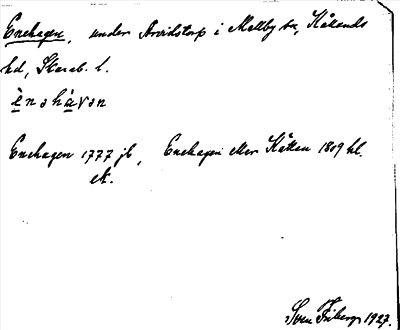 Enehagen, under Arvidstorp i Mellby sn, Kållands
hd, Skarab. l.
è n ə h à γ ə n
Enehagen 1777 jb, Enehagen eller Kåtan 1809 hl.
ek.
Sven Friberg 1927.